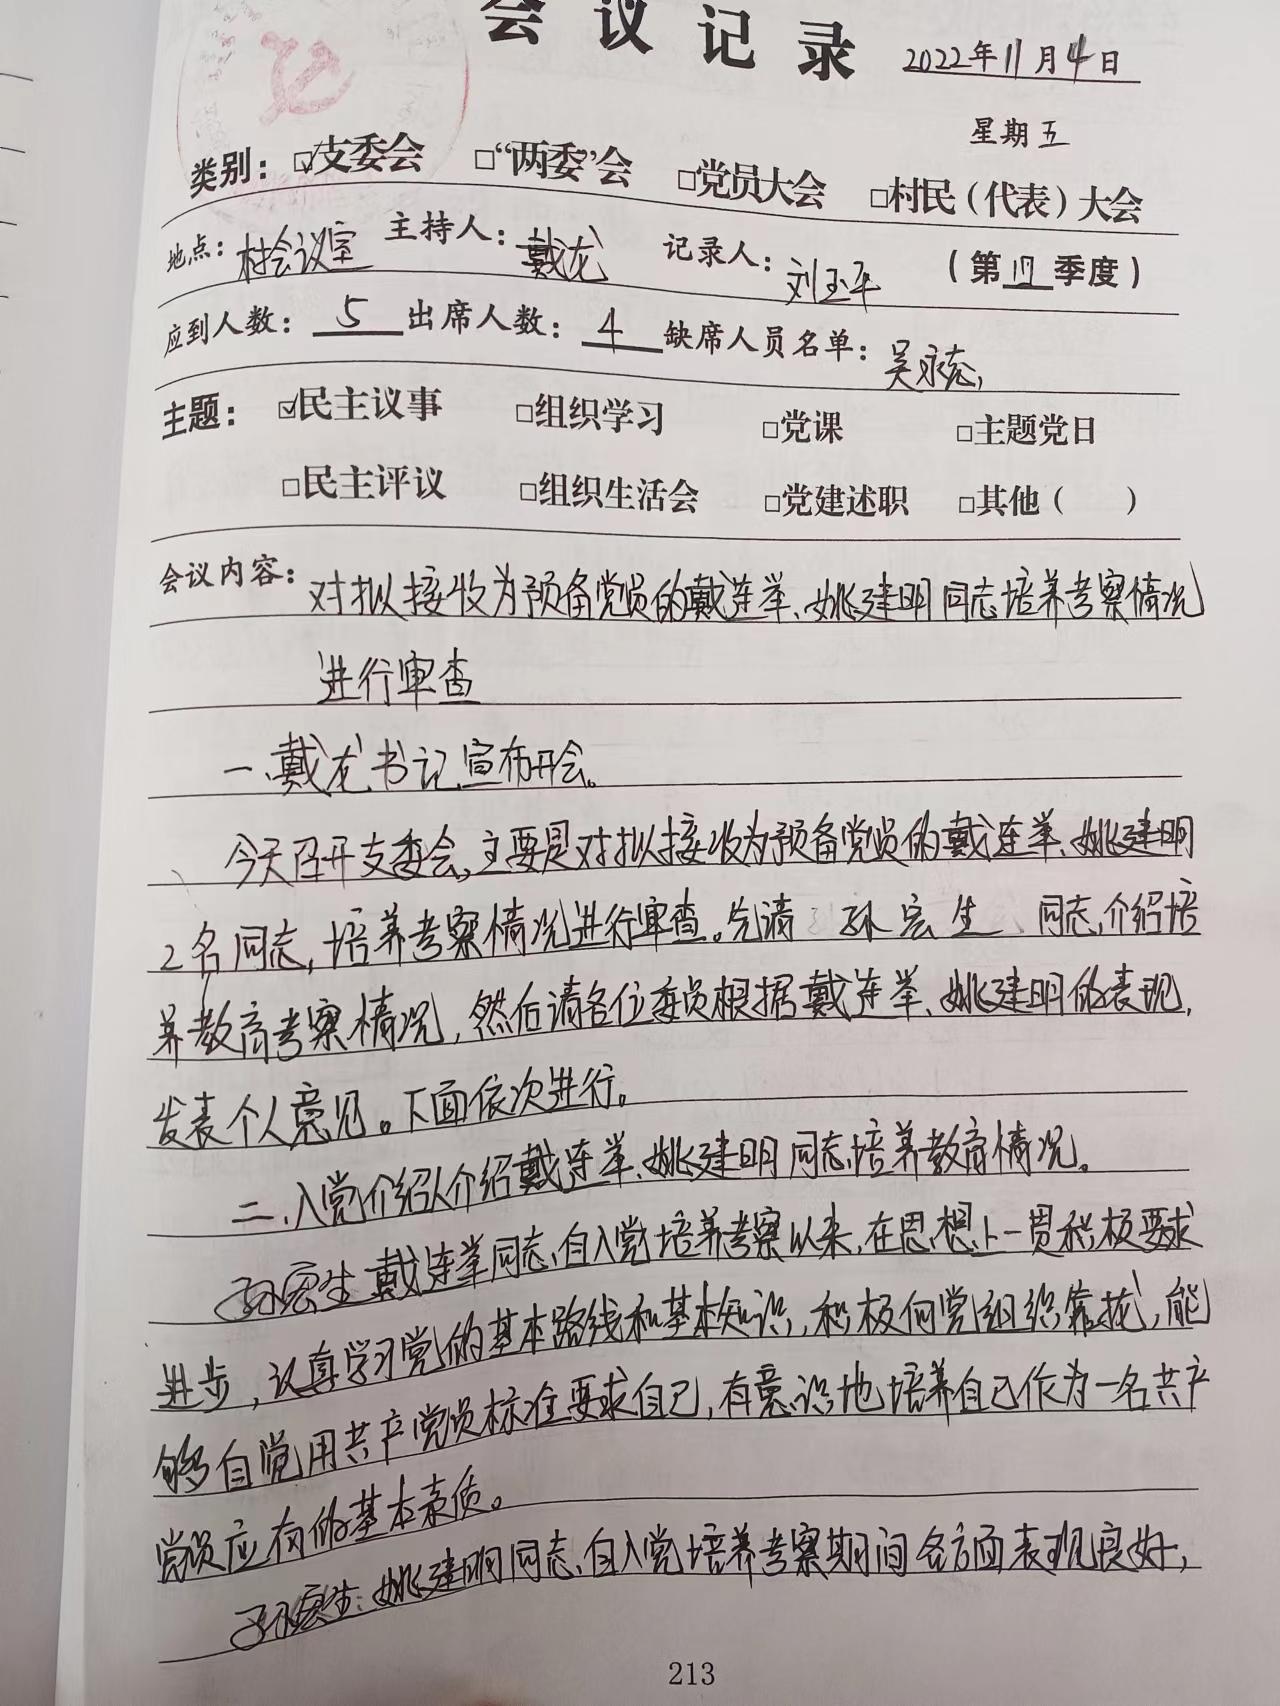 会议记录 2022年11月4日
星期五
类别：☑支委会 □“两委”会 □党员大会 □村民（代表）大会
地点：村会议室 主持人：戴龙 记录人：刘玉平 （第四季度）
应到人数：5 出席人数：4 缺席人员名单：吴永
主题：☑民主议事 □组织学习 □党课 □主题党日
□民主评议 □组织生活会 □党建述职 □其他（ ）
会议内容：对拟接收为预备党员的戴连举、姚建明同志培养考察情况
进行审查
一、戴龙书记宣布开会。
今天召开支委会，主要是对拟接收为预备党员的戴连举、姚建明
2名同志，培养考察情况进行审查。先请 孙宏生 同志，介绍培
养教育考察情况，然后请各位委员根据戴连举、姚建明的表现，
发表个人意见。下面依次进行。
二、入党介绍人介绍戴连举、姚建明同志培养教育情况。
孙宏生 戴连举同志，自入党培养考察以来，在思想上一贯积极要求
进步，认真学习党的基本路线和基本知识，积极向党组织靠拢，能
够自觉用共产党员标准要求自己，有意识地培养自己作为一名共产
党员应有的基本素质。
孙宏生：姚建明同志，自入党培养考察期间各方面表现良好，
213